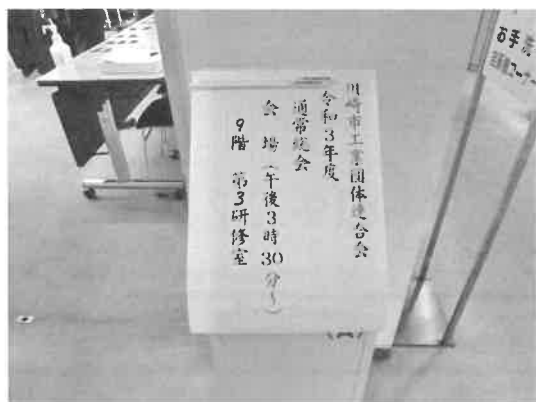 川崎市工業団体連合会
令和3年度
通常総会
会場(午後3時30分～)
9階 第3研修室
お手